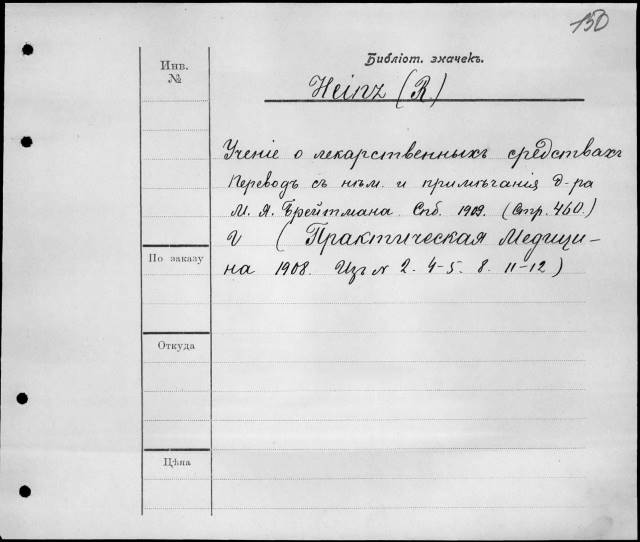 150
Инв.
№
Библіот. значекъ.
Heinz (R.)
Ученіе о лекарственныхъ средствахъ
Переводъ съ нѣм. и примѣчанія д-ра
М. Я. Брейтмана. Спб. 1909. (Стр. 460.)
(Практическая Медици-
на 1908. № 2. 4-5. 8. 11-12)
По заказу
Откуда
Цѣна